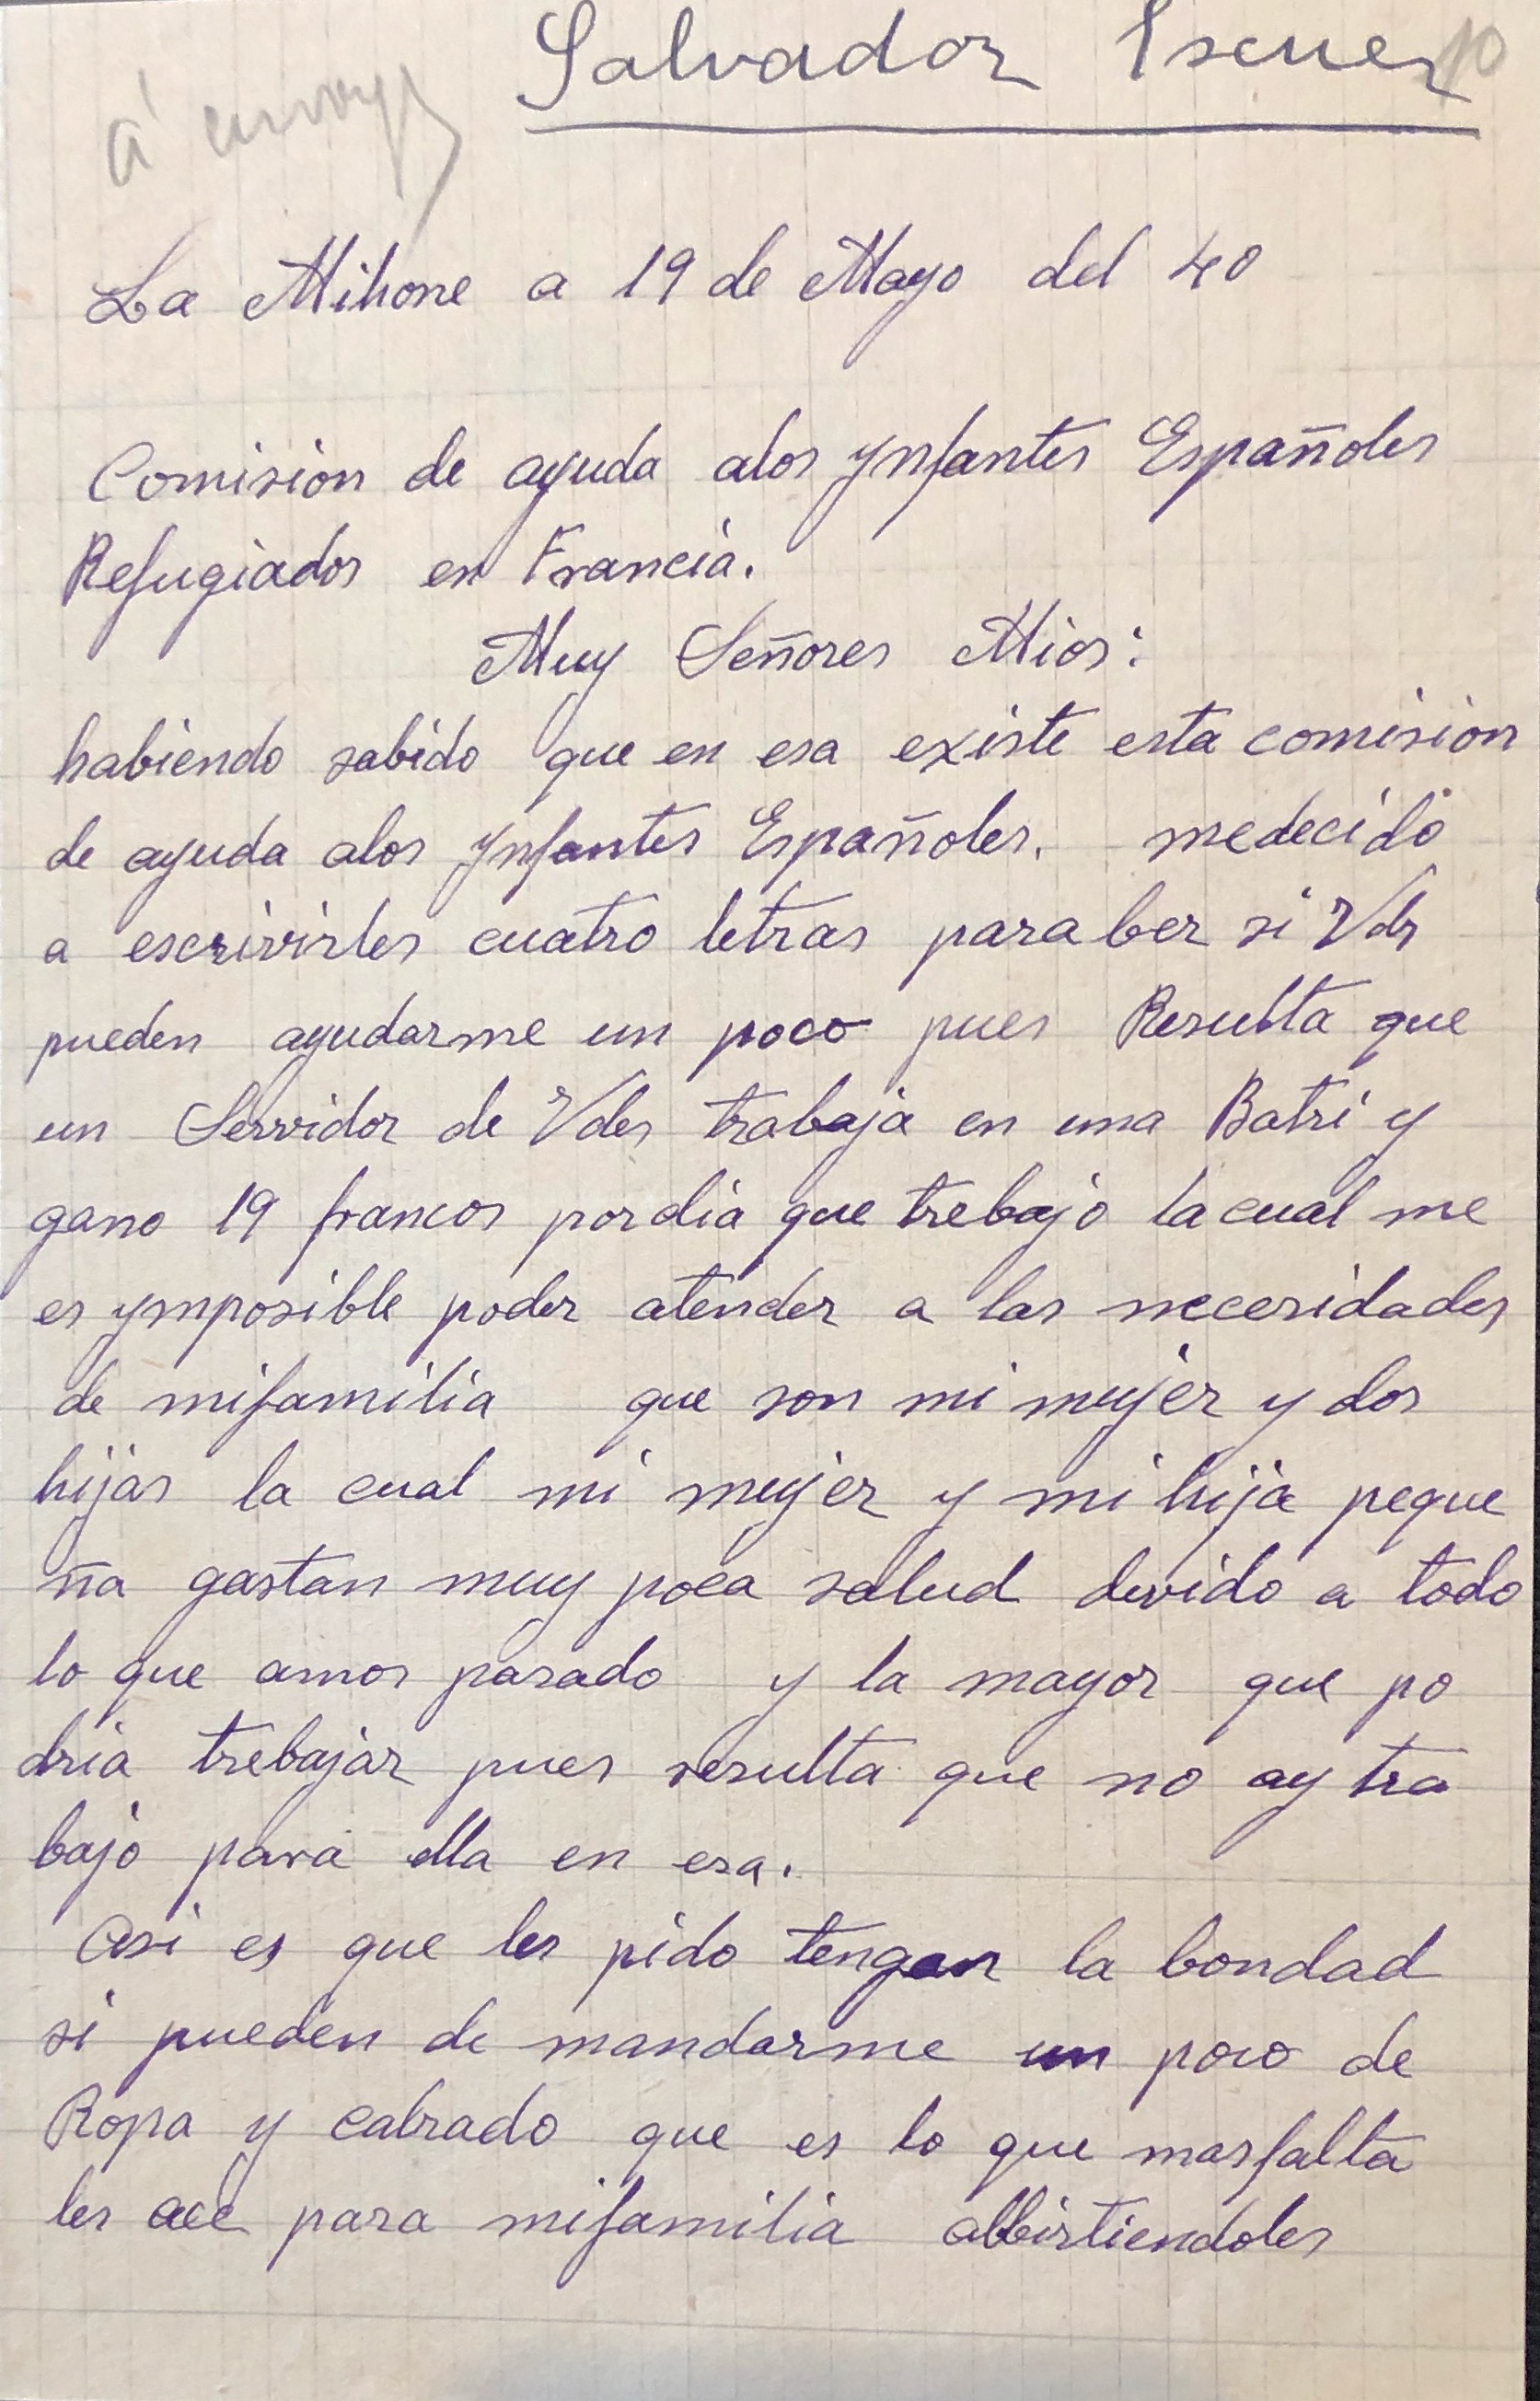 Salvador Escuer
La Mihone a 19 de Mayo del 40
Comision de ayuda alos ynfantes Españoles
Refugiados en Francia.
Muy Señores Mios:
habiendo sabido que en esa existe esta comision
de ayuda alos ynfantes Españoles. medecido
a escrivirles cuatro letras para ber si Vds
pueden ayudarme un poco pues Resulta que
un Servidor de Vdes trabaja en una Batri y
gano 19 francos pordia que trebajo lacual me
es ymposible poder atender a las necesidades
de mifamilia que son mi mujer y dos
hijas la cual mi mujer y mi hija peque
ña gastan muy poca salud devido a todo
lo que amos pasado y la mayor que po
dria trebajar pues resulta que no ay tra
bajo para ella en esa.
Asi es que les pido tengan la bondad
si pueden de mandarme un poco de
Ropa y calzado que es lo que masfalta
les ace para mifamilia albirtiendoles